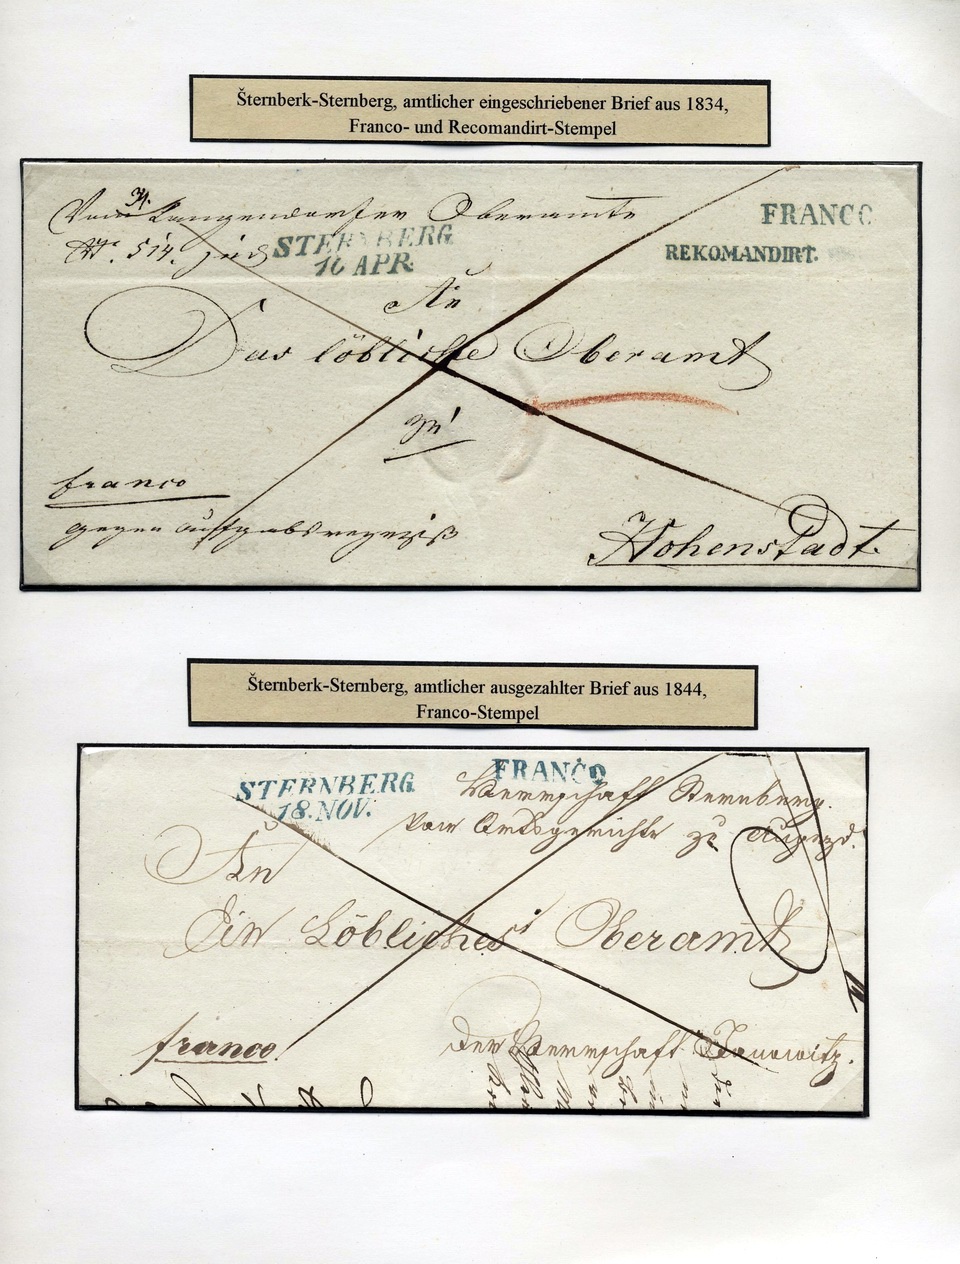 Šternberk-Sternberg, amtlicher eingeschriebener Brief aus 1834,
Franco- und Recomandirt-Stempel
Vom Langendorfer Oberamte
FRANCO
N. 514. jud
STERNBERG
16 APR.
REKOMANDIRT.
An
Das löbliche Oberamt
zu
franco
gegen Aufgabsrezepiß
Hohenstadt.
Šternberk-Sternberg, amtlicher ausgezahlter Brief aus 1844,
Franco-Stempel
STERNBERG
18. NOV.
FRANCO
Herrschaft Sternberg.
vom Ortsgerichte zu Augezd.
An
Ein Löbliches Oberamt
franco.
der Herrschaft